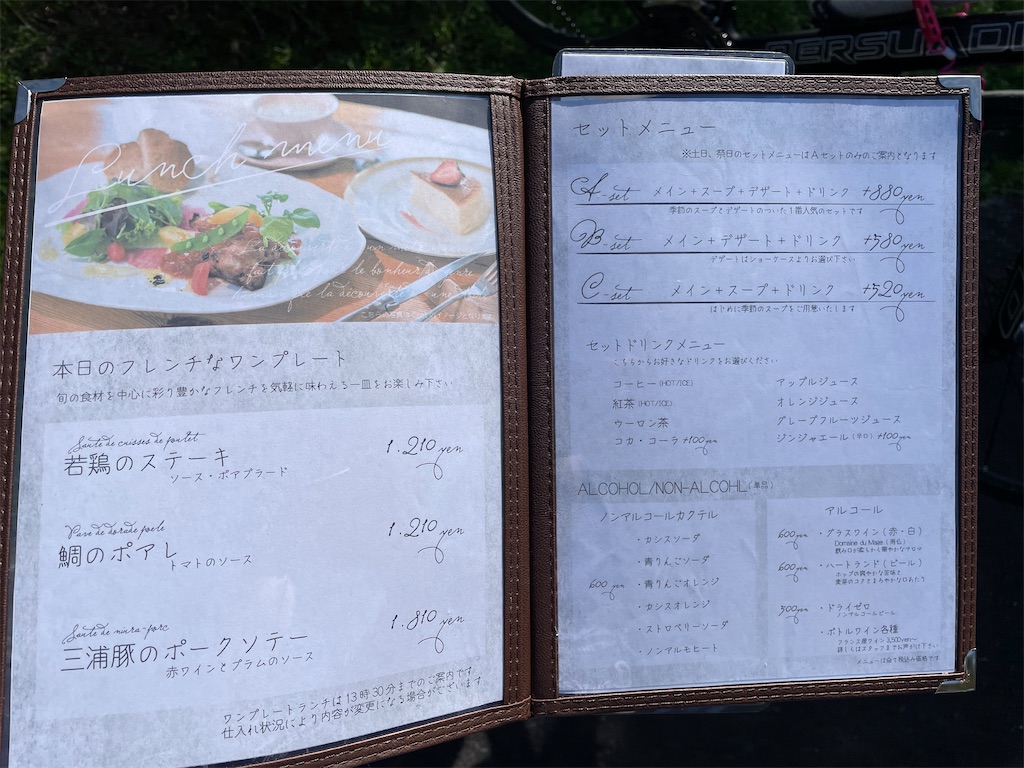 PERSUADI
Lunch menu
本日のフレンチなワンプレート
旬の食材を中心に彩り豊かなフレンチを気軽に味わえる一皿をお楽しみ下さい
Saute de cuisses de poulet
若鶏のステーキ
ソース・ポアブラード
1.210 yen
Pave de dorade poele
鯛のポアレ
トマトのソース
1.210 yen
Saute de miura-porc
三浦豚のポークソテー
赤ワインとプラムのソース
1.810 yen
ワンプレートランチは13時30分までのご案内です
仕入れ状況により内容が変更になる場合がございます
セットメニュー
※土日、祭日のセットメニューはAセットのみのご案内となります
A-set メイン+スープ+デザート+ドリンク +880yen
季節のスープとデザートのついた1番人気のセットです
B-set メイン+デザート+ドリンク +580yen
デザートはショーケースよりお選び下さい
C-set メイン+スープ+ドリンク +520yen
はじめに季節のスープをご用意いたします
セットドリンクメニュー
こちらからお好きなドリンクをお選びください
コーヒー(HOT/ICE)
紅茶(HOT/ICE)
ウーロン茶
コカ・コーラ +100yen
アップルジュース
オレンジジュース
グレープフルーツジュース
ジンジャエール(辛口) +100yen
ALCOHOL/NON-ALCOHL(単品)
ノンアルコールカクテル
・カシスソーダ
・青りんごソーダ
600 yen ・青りんごオレンジ
・カシスオレンジ
・ストロベリーソーダ
・ノンアルモヒート
アルコール
600yen ・グラスワイン(赤・白)
Domaine du Mage(南仏)
飲み口が柔らかく華やかなアロマ
600yen ・ハートランド(ビール)
ホップの爽やかな苦味と
麦芽のコクとまろやかな口あたり
500yen ・ドライゼロ
ノンアルコールビール
・ボトルワイン各種
フランス産ワイン3,500yen〜
詳しくはスタッフまでお声がけ下さい
メニューは全て税込み価格です